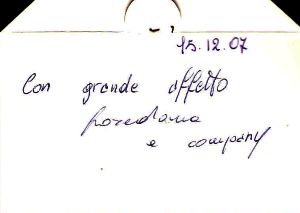 15.12.07
Con grande affetto
e company